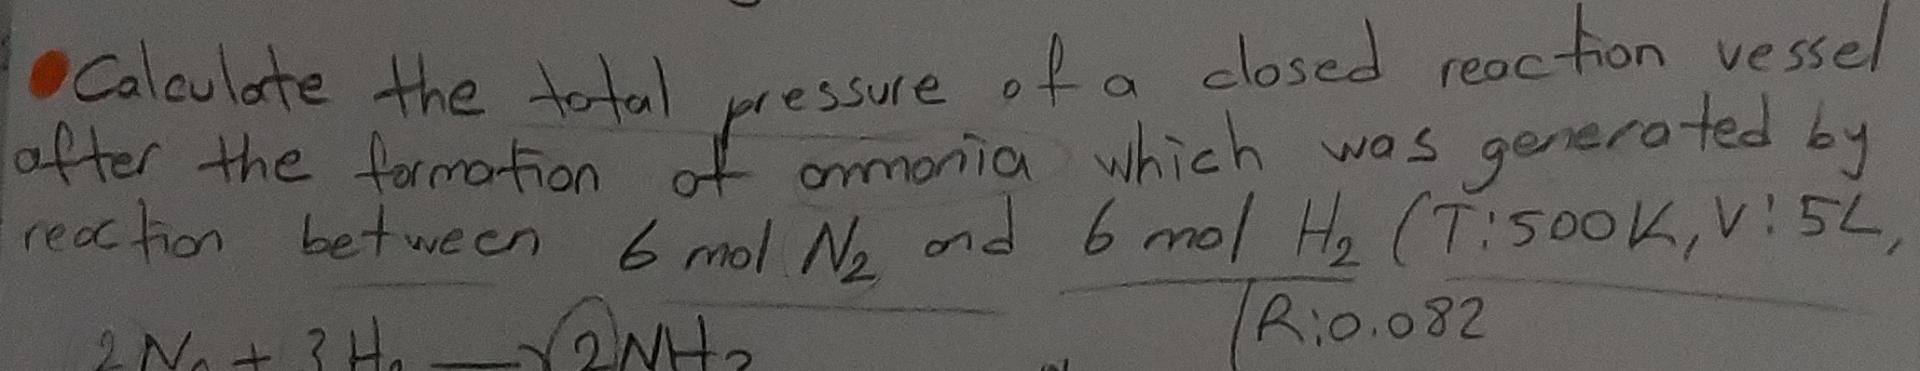 Calculate the total pressure of a closed reaction vessel
after the formation of ammonia which was generated by
reaction between 6 mol N₂ and 6 mol H₂ (T:500K, V:5L,
R:0.082
2N₂ + 3H₂ → 2NH₃